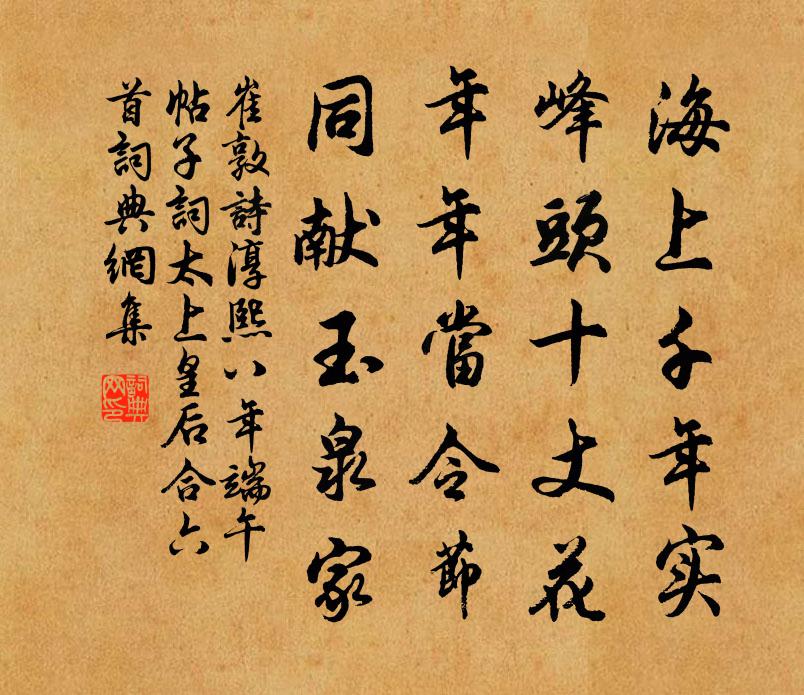 海上千年实
峰頭十丈花
年年當令節
同献玉泉家
崔敦詩淳熙八年端午
帖子詞太上皇后合六
首詞典網集
詞典网印